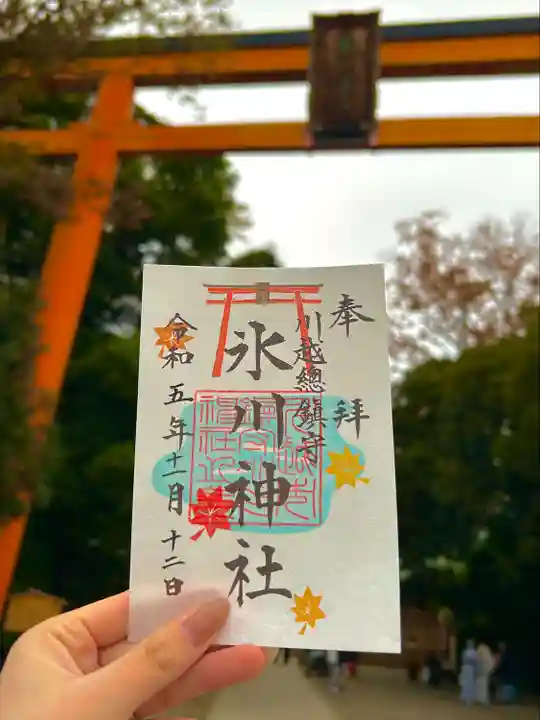 奉拝
川越總鎮守
氷川神社
令和五年十一月十二日